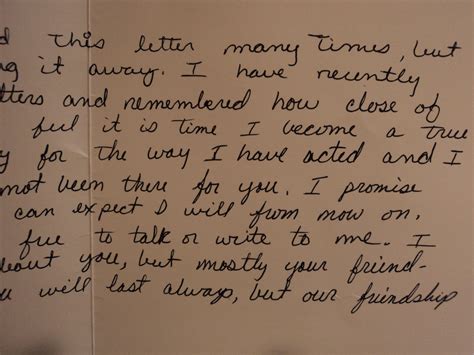 d this letter many times, but
ng it away. I have recently
tters and remembered how close of
feel it is time I become a true
y for the way I have acted and I
not been there for you. I promise
can expect I will from now on.
free to talk or write to me. I
about you, but mostly your friend-
u will last always, but our friendship